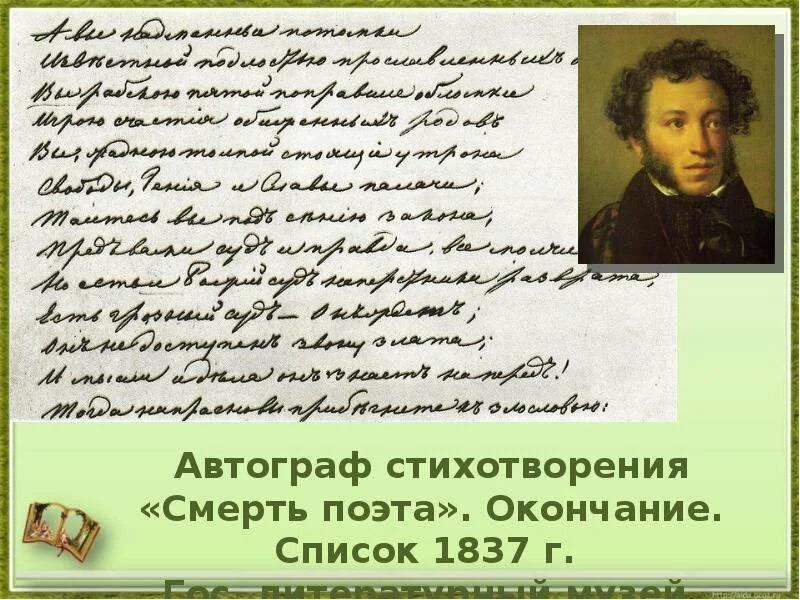 А вы надменные потомки
Извѣстной подлостью прославленныхъ
Вы, рабскою пятой поправшие обломки
Игрою счастія обиженныхъ родовъ
Вы, жадною толпой стоящіе у трона
Свободы, Генія и Славы палачи;
Таитесь вы подъ сѣнію закона,
Предъ вами судъ и правда, все молчи
Но есть и Божій судъ наперстники разврата,
Есть грозный судъ – Онъ ждетъ;
Онъ не доступенъ звону злата;
И мысли и дѣла онъ знаетъ напередъ!
Тогда напрасно вы прибѣгнете къ злословью:
Автограф стихотворения
«Смерть поэта». Окончание.
Список 1837 г.
Гос. литературный музей
http://aida.ucoz.ru